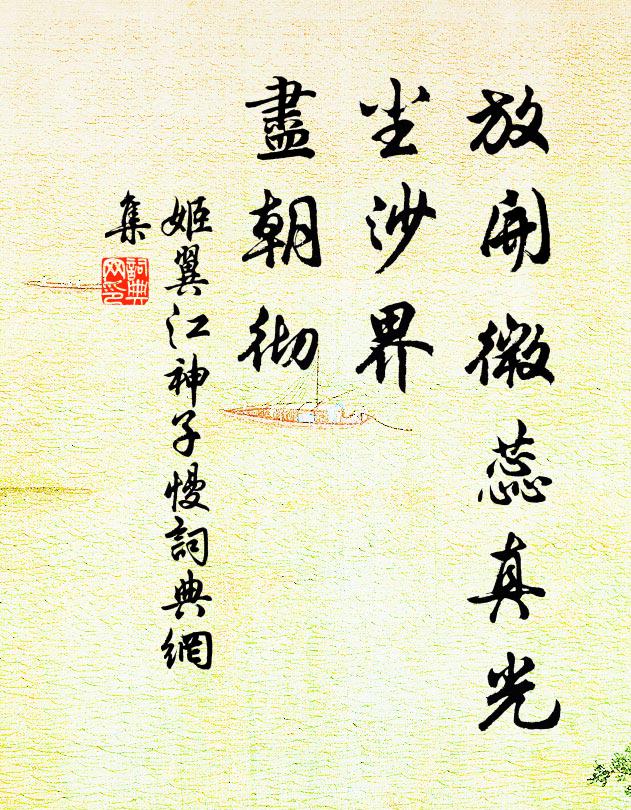 放開微蕊真光
尘沙界
盡朝彻
姬翼江神子慢詞典網
集
詞典
网印